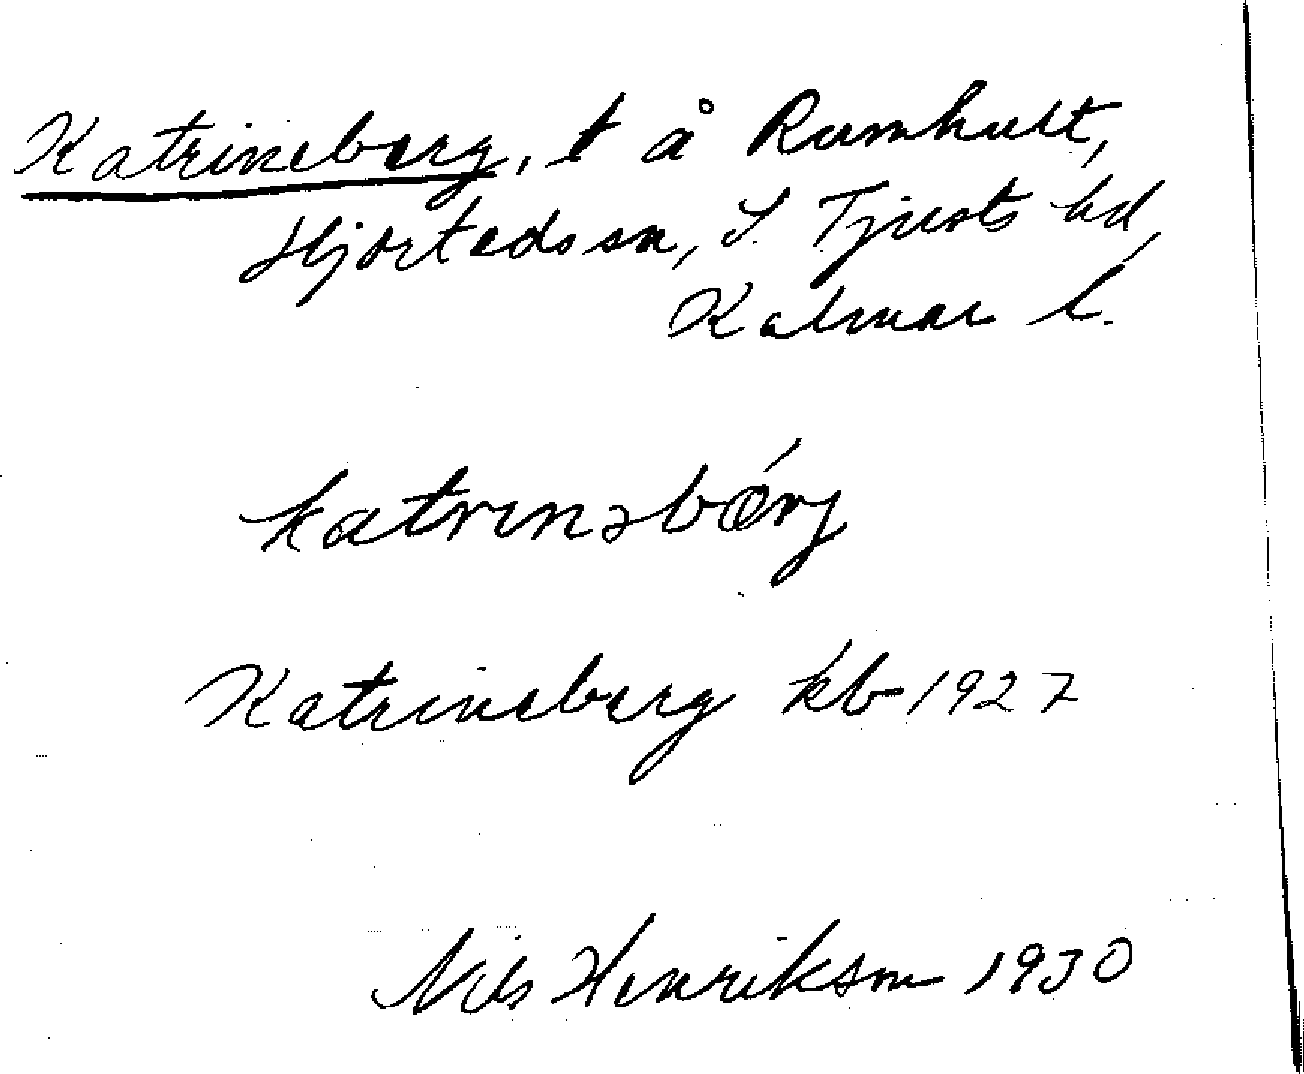 Katrineberg, t å Rumhult,
Hjorteds sn, S. Tjusts hd,
Kalmar l.
katrinəbǿrj
Katrineberg kb 1927
Nils Henrikson 1930